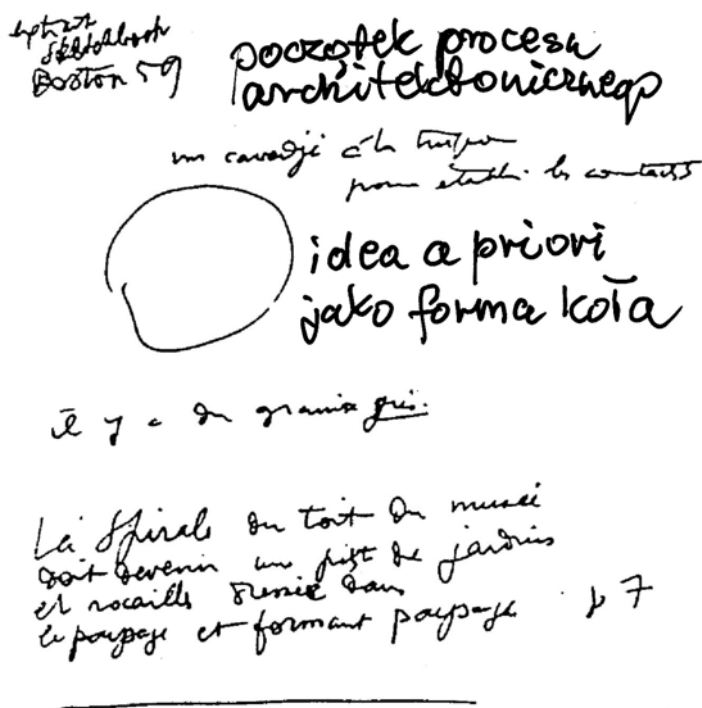 Sketchbook
Boston 59
początek procesu
architektonicznego
un
pour établir les contacts
idea a priori
jako forma koła
il y a du granix gris.
La Spirale du toit du musée
doit devenir un de jardins
et rocailles dans
le paysage et formant paysage p 7